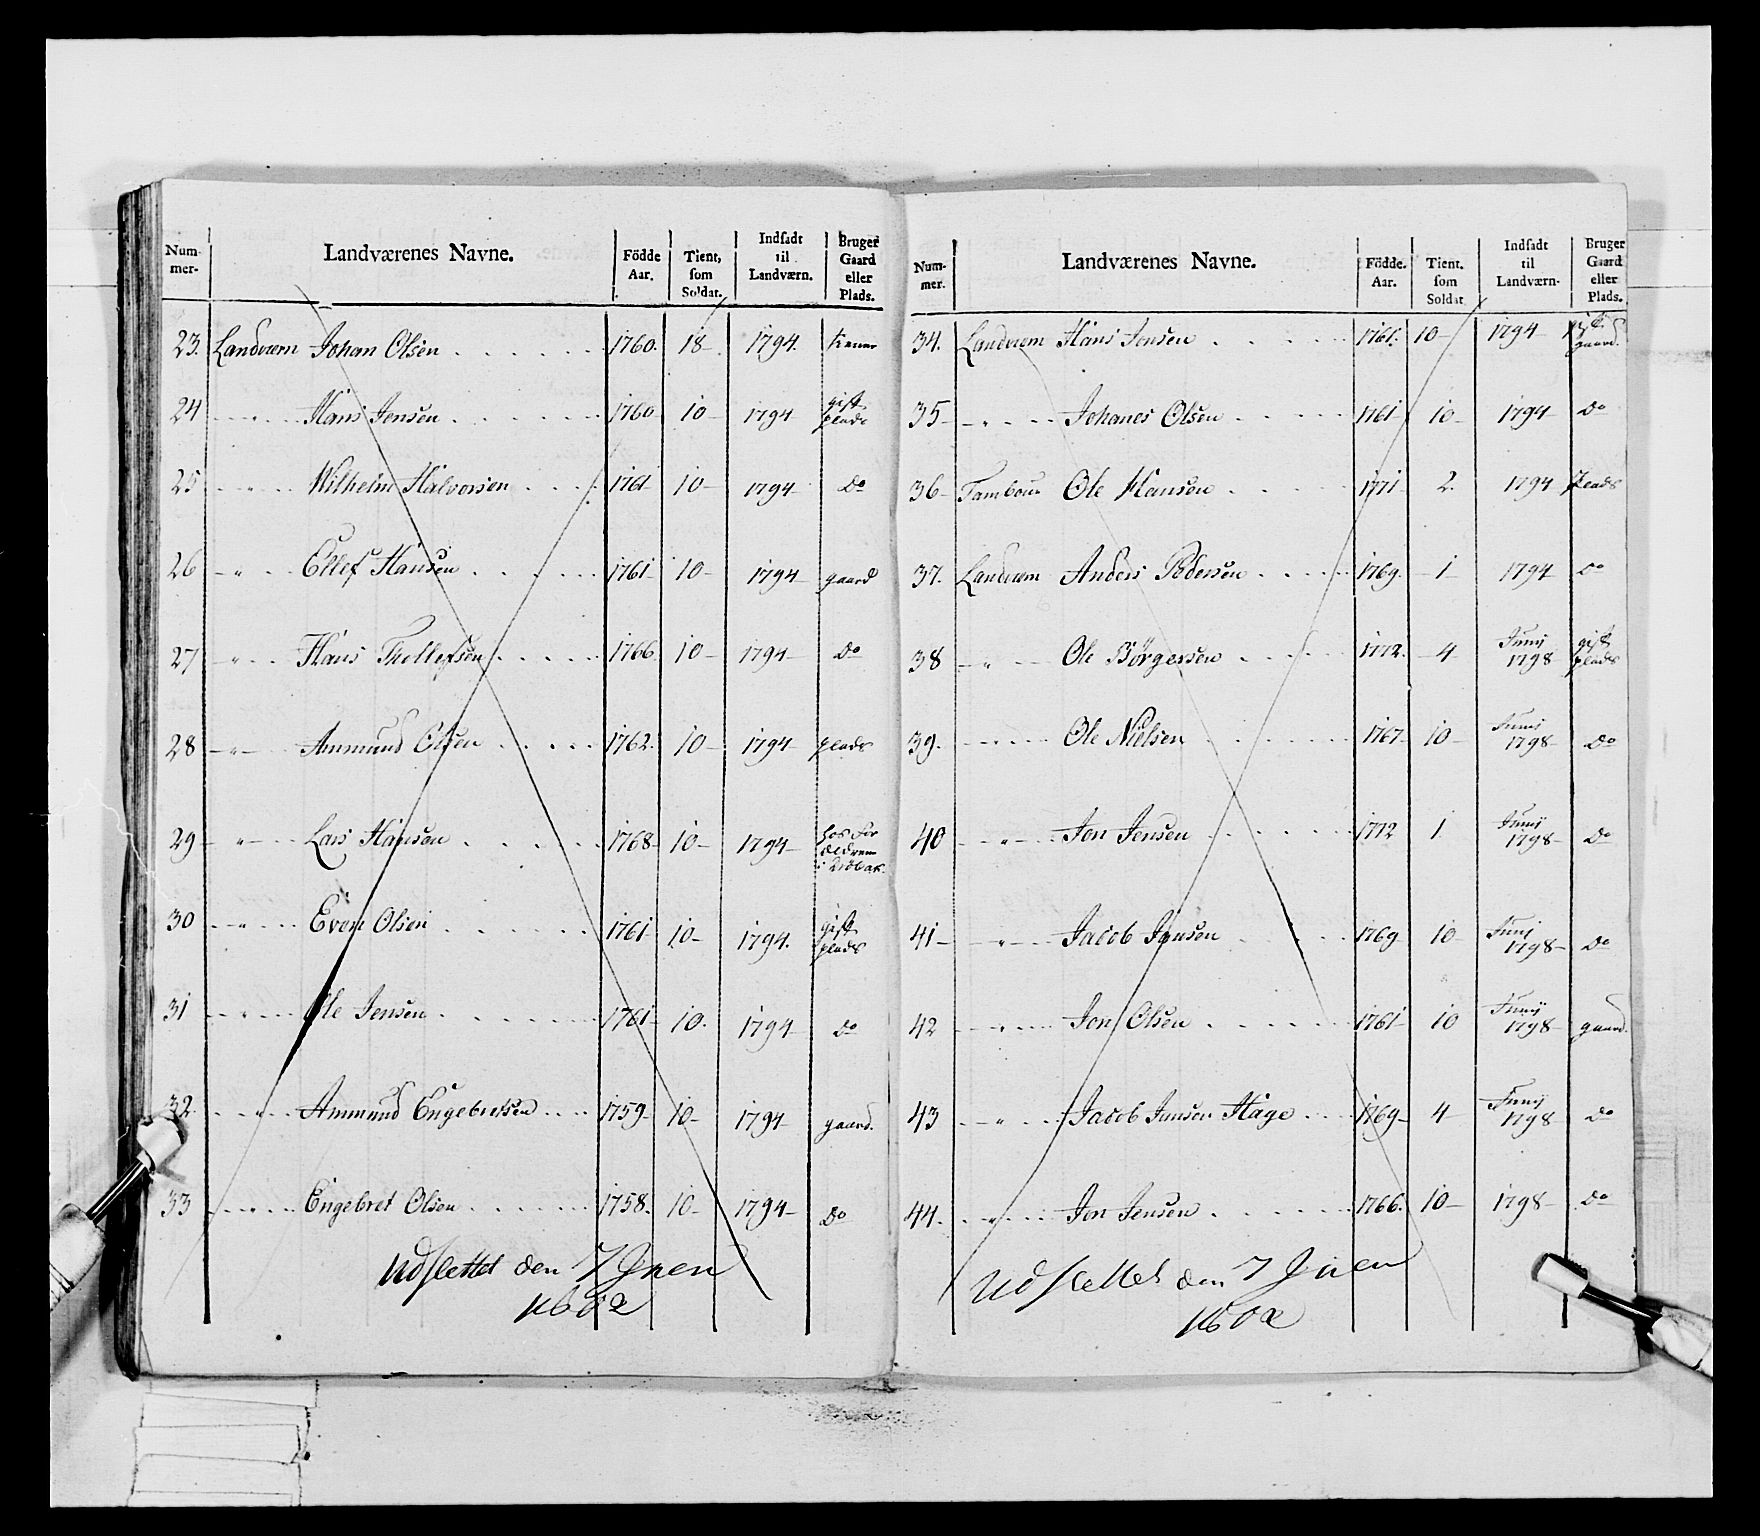 Num-mer- Landværenes Navne. Födde Aar. Tient, som Soldat. Indsadt til Landværn. Bruger Gaard eller Plads.
23. Landværn Johan Olsen 1760. 18 1794. tienner
24 " Hans Jensen 1760 10 1794 gift plads
25 " Wilhelm Halvorsen 1761 10 1794 Do
26 " Ellef Hansen 1761 10 1794 gaard
27 " Hans Trellefsen 1766 10 1794 Do
28 " Ammund Olsen 1762. 10 1794 plads
29 " Lars Hansen 1768 10 1794 hos For ældrene i
30 " Even Olsen 1761 10 1794. gift plads
31 " Ole Jensen 1761 10. 1794 Do
32. " Ammund Engebretsen 1759 10 1794 gaard.
33 " Engebret Olsen 1758. 10 1794 Do
Udslettet den 7 Jnen
1802
Num-mer. Landværenes Navne. Födde. Aar. Tient. som Soldat Indsadt til Landværn- Bruger Gaard eller Plads.
34. Landværn Hans Jensen 1761. 10 1794 gift gaard.
35 " Johanes Olsen 1761 10 1794 Do
36 Tambour Ole Hansen 1771 2. 1794 Plads
37. Landværn Anders Pedersen 1769. 1 1794 Do
38 " Ole Börgersen 1772. 4 Junij 1798 gift plads
39. " Ole Nielsen 1767 10 Junij 1798 Do
40 " Jon Jensen 1772 1 Junij 1798 Do
41 " Jacob Jansen 1769 10 Junij 1798 Do
42 " Jon Olsen 1761 10 Junij 1798 gaard.
43 " Jacob Jansen Hage 1769 4 Junij 1798 Do
44. " Jon Jensen 1766. 10 1798 Do
Udslettet den 7 Juen
1802